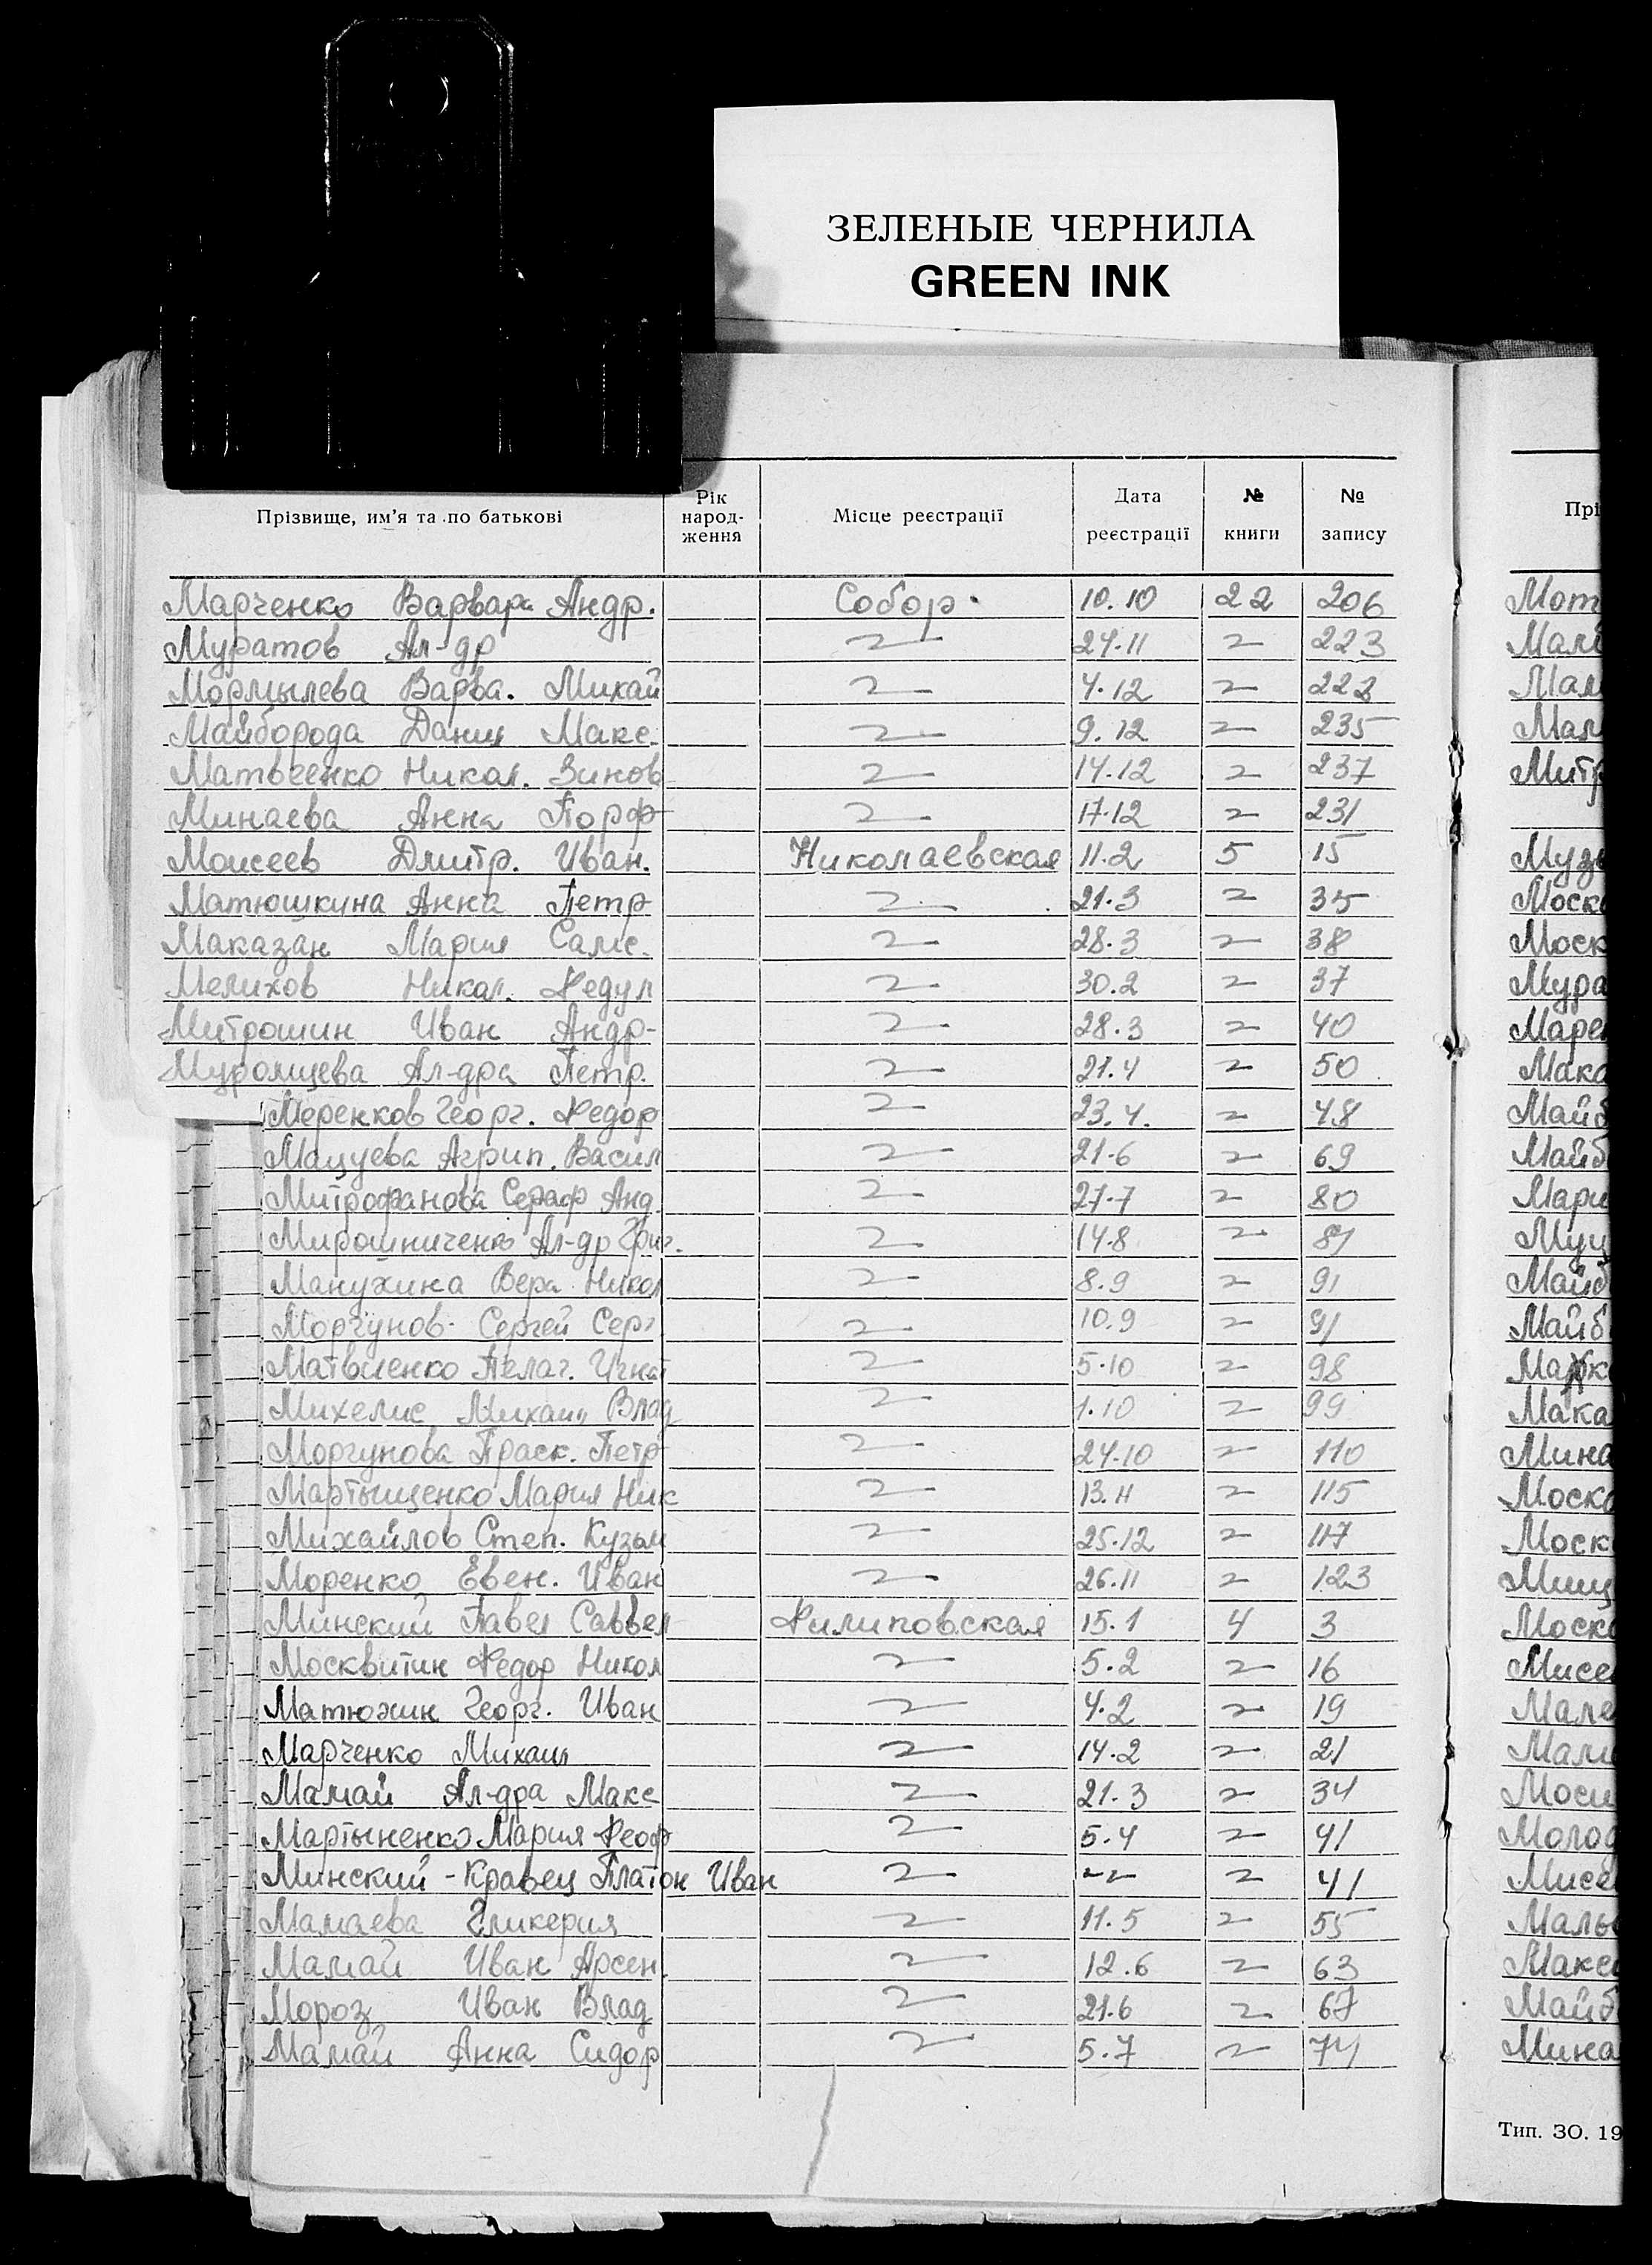 ЗЕЛЕНЫЕ ЧЕРНИЛА
GREEN INK
Прізвище, им'я та по батькові Рік народ-ження Місце реєстрації Дата реєстрації № книги № запису Прі
Марченко Варвара Андр. Собор. 10.10 22 206
Муратов Ал-др 〃 24.11 〃 223
Мормылева Варва. Михай 〃 4.12 〃 222
Майборода Данил Макс. 〃 9.12 〃 235
Матвеенко Никол. Зинов 〃 14.12 〃 237
Минаева Анна Порф 〃 17.12 〃 231
Моисеев Дмитр. Иван. Николаевская 11.2 5 15
Матюшкина Анна Петр 〃 21.3 〃 35
Маказан Мария Самс. 〃 28.3 〃 38
Мелихов Никол. Федул 〃 30.2 〃 37
Митрошин Иван Андр- 〃 28.3 〃 40
Муромцева Ал-дра Петр. 〃 21.4 〃 50
Меренков Георг. Федор 〃 23.4. 〃 48
Мацуева Агрип. Васил 〃 21.6 〃 69
Митрофанова Сераф Анд. 〃 27.7 〃 80
Мирошниченко Ал-др Григ. 〃 14.8 〃 87
Манухина Вера Никол 〃 8.9 〃 91
Моргунов Сергей Серг 〃 10.9 〃 91
Матвиенко Пелаг. Игнат 〃 5.10 〃 98
Михелис Михаил Влад 〃 1.10 〃 99
Моргунова Праск. Петр 〃 24.10 〃 110
Мартыщенко Мария Ник 〃 13.11 〃 115
Михайлов Степ. Кузьм 〃 25.12 〃 117
Моренко Евген. Иван 〃 26.11 〃 123
Минский Павел Саввел Филиповская 15.1 4 3
Москвитин Федор Никол 〃 5.2 〃 16
Матюхин Георг. Иван 〃 4.2 〃 19
Марченко Михаил 〃 14.2 〃 21
Мамай Ал-дра Макс 〃 21.3 〃 34
Мартыненко Мария Феоф 〃 5.4 〃 41
Минский-Кравец Платон Иван 〃 〃 〃 41
Мамаева Гликерия 〃 11.5 〃 55
Мамай Иван Арсен. 〃 12.6 〃 63
Мороз Иван Влад 〃 21.6 〃 67
Мамай Анна Сидор 〃 5.7 〃 74
Тип. ЗО. 19